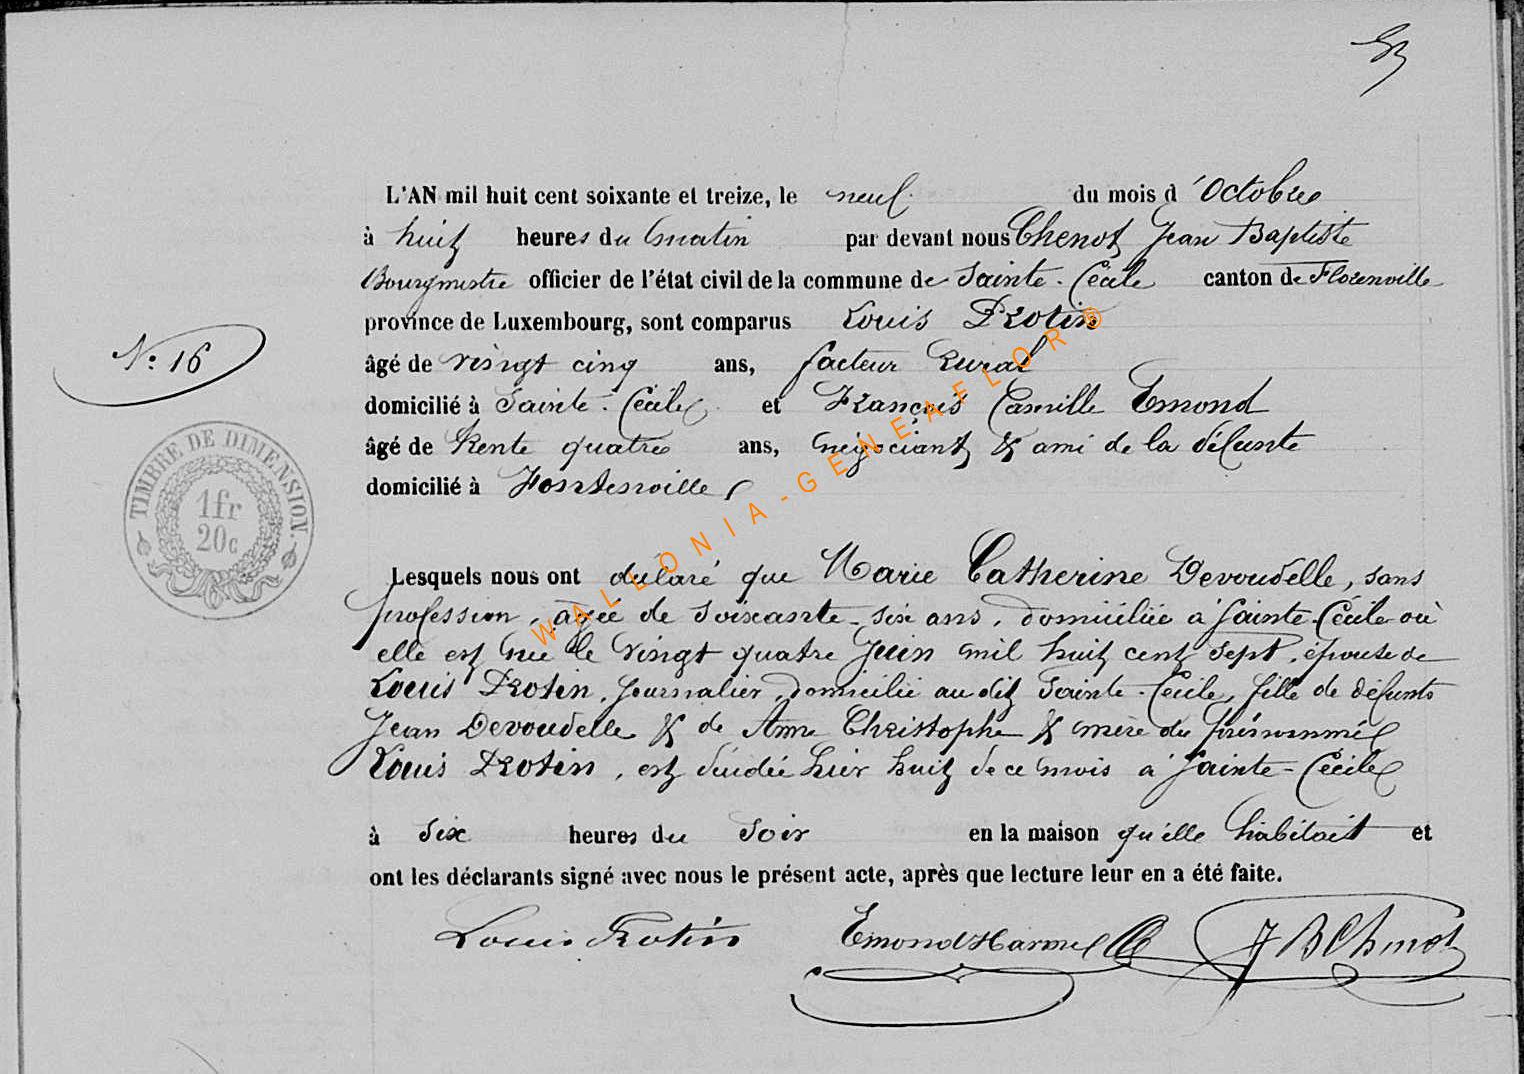 L'AN mil huit cent soixante et treize, le neuf du mois d'Octobre
à huit heures du matin par devant nous Chenot Jean Baptiste
Bourgmestre officier de l'état civil de la commune de Sainte-Cécile canton de Florenville
province de Luxembourg, sont comparus Louis Protin
N° 16
âgé de vingt cinq ans, facteur Rural
domicilié à Sainte-Cécile et François Camille Emond
âgé de trente quatre ans, négociant & ami de la défunte
domicilié à Fontenoille
TIMBRE DE DIMENSION.
1fr
20c
Lesquels nous ont déclaré que Marie Catherine Devoudelle, sans
profession, agée de soixante-six ans, domiciliée à Sainte-Cécile où
elle est née le vingt quatre Juin mil huit cent sept, épouse de
Louis Protin, journalier, domicilié au dit Sainte-Cécile, fille de défunts
Jean Devoudelle & de Anne Christophe & mère du prénommé
Louis Protin, est décédée hier huit de ce mois à Sainte-Cécile
à six heures du soir en la maison qu'elle habitait et
ont les déclarants signé avec nous le présent acte, après que lecture leur en a été faite.
Louis Protin EmondHarmel JBChenot
WALLONIA-GENEAFLOR®